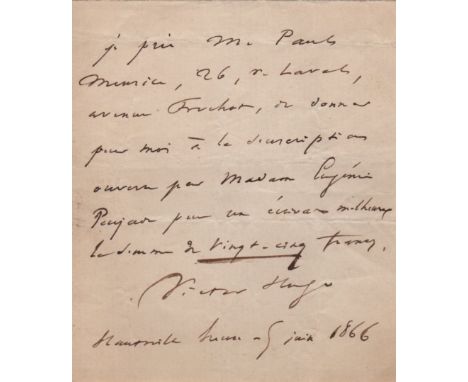 je prie M. Paul
Meurice, 26, r. Laval,
avenue Frochot, de donner
pour moi à la souscription
ouverte par Madame Eugénie
Poujade pour un écrivain malheureux
la somme de vingt-cinq francs.
Victor Hugo
Hauteville house - 5 juin 1866